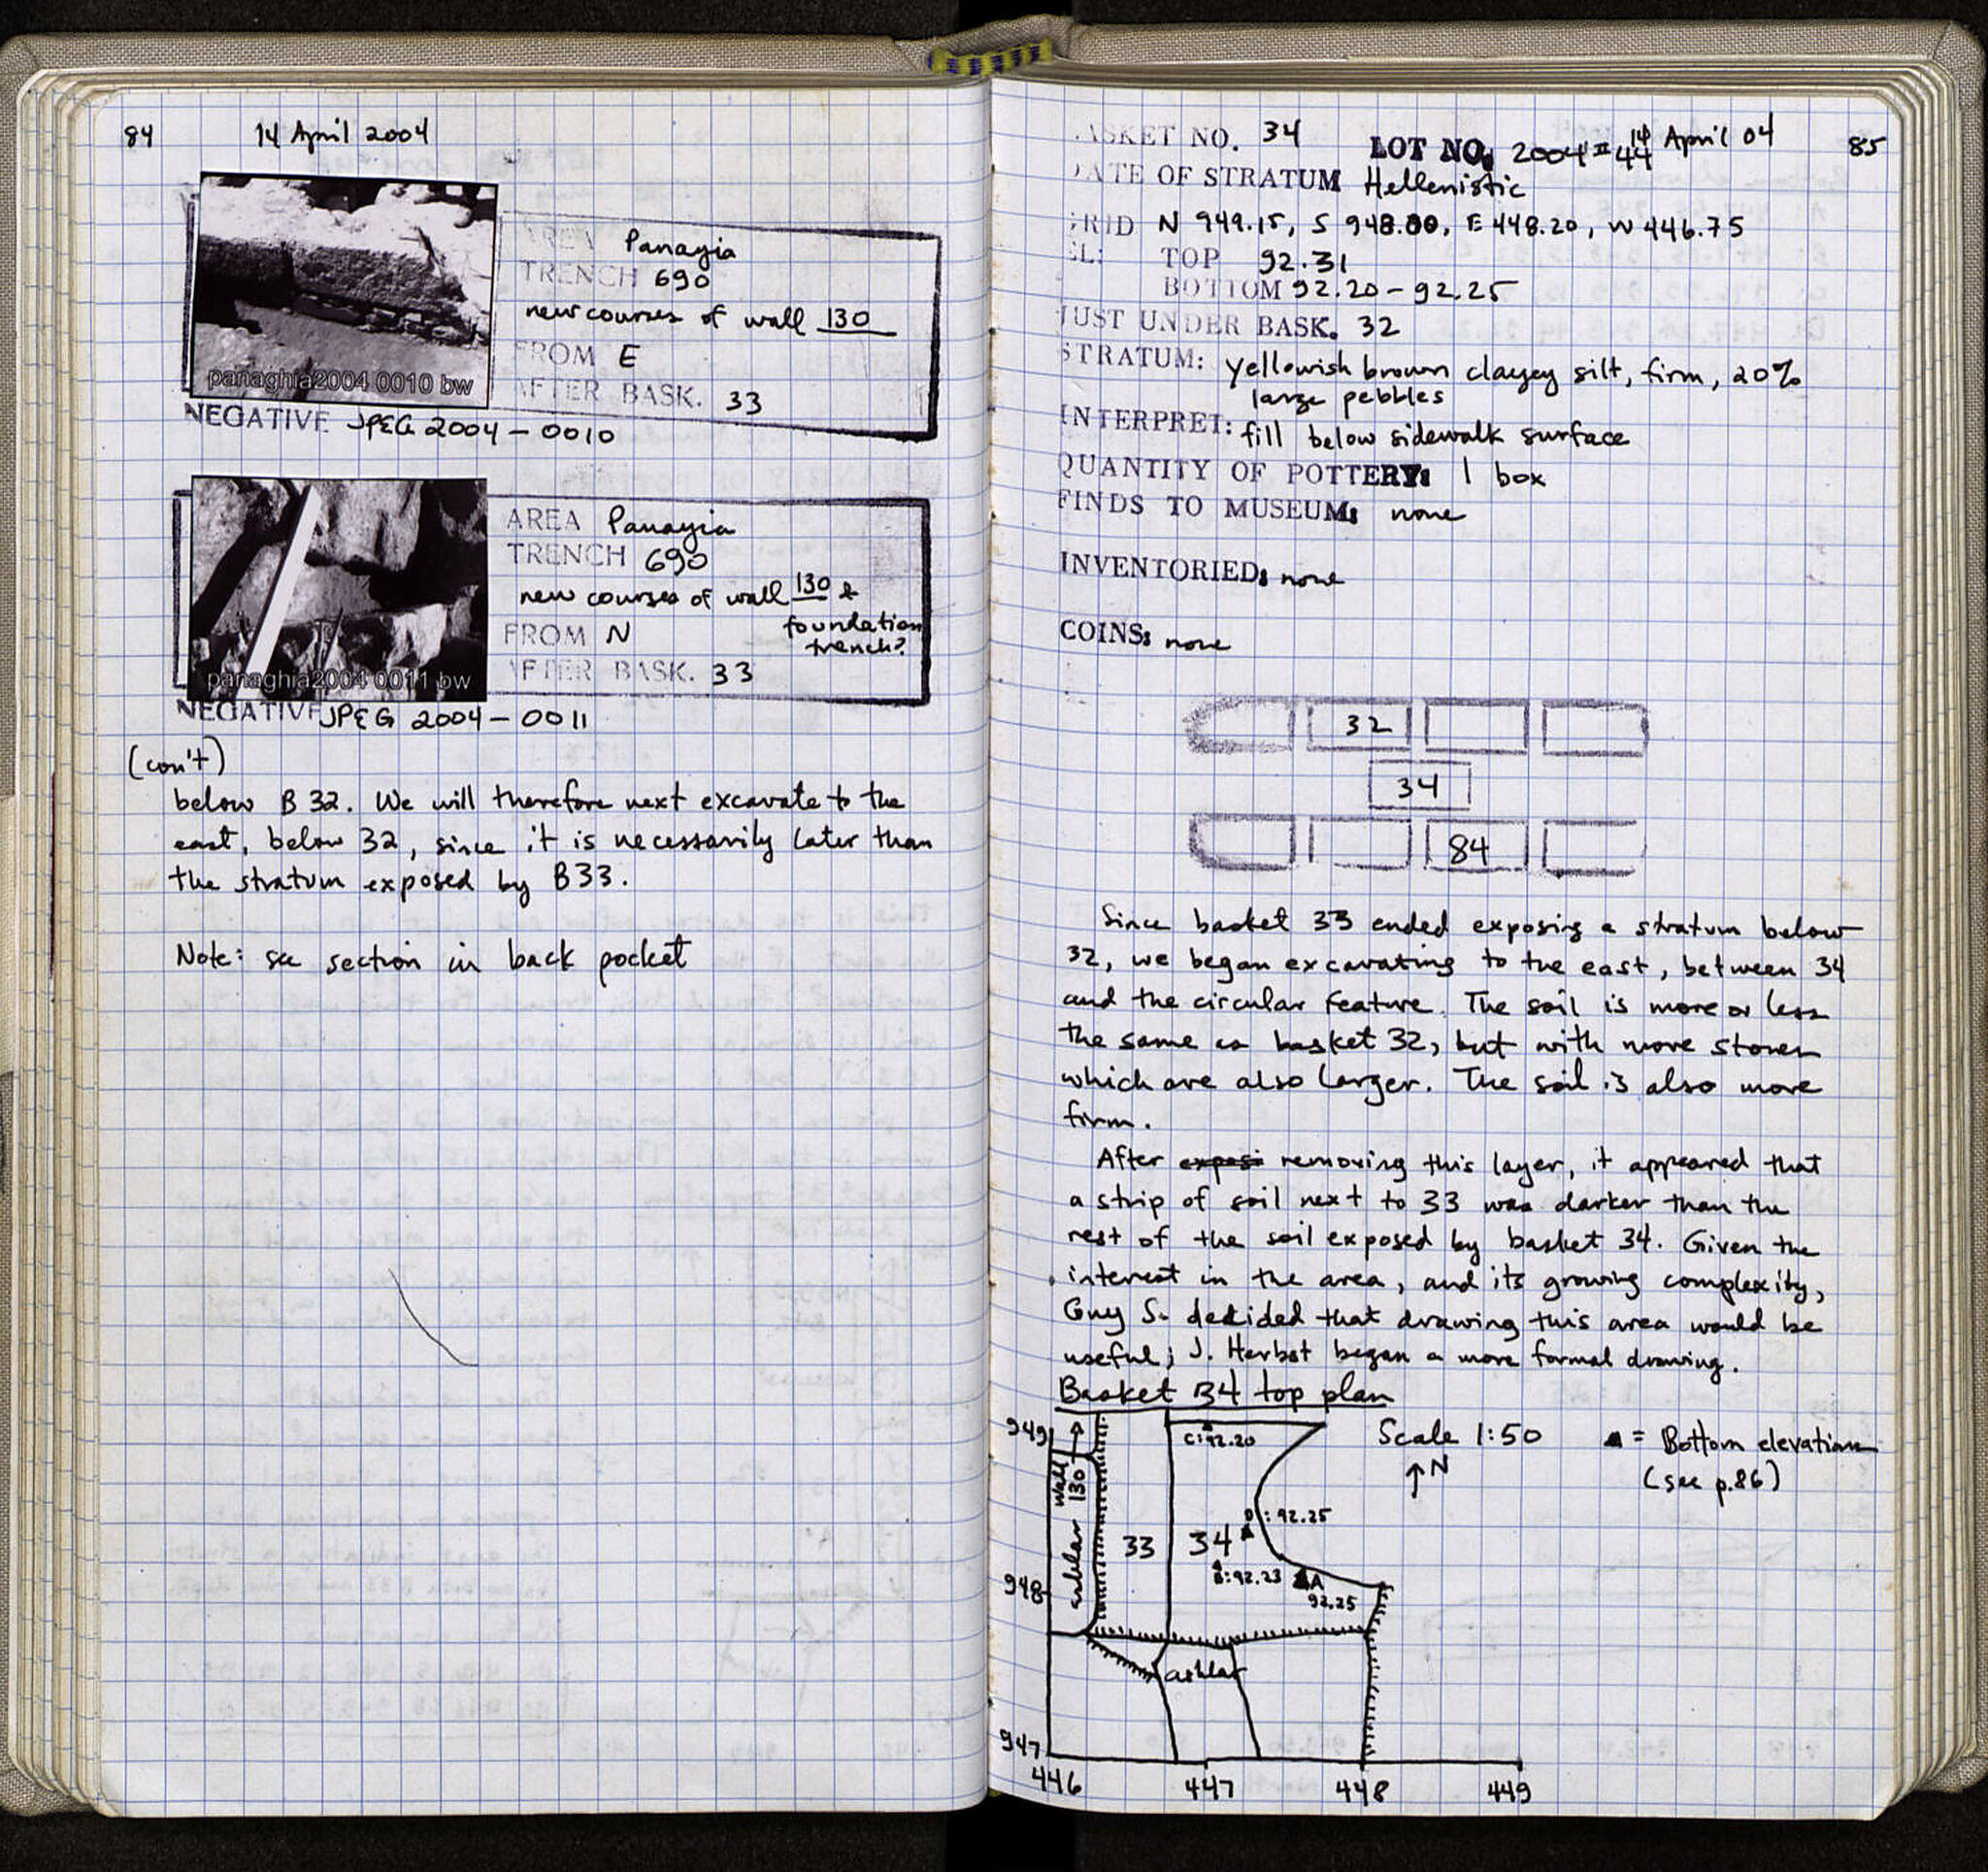 84 14 April 2004
AREA Panayia
TRENCH 690
new courses of wall 130
FROM E
AFTER BASK. 33
panaghia2004 0010 bw
NEGATIVE JPEG 2004-0010
AREA Panayia
TRENCH 690
new courses of wall 130 &
foundation
FROM N trench?
AFTER BASK. 33
panaghia2004 0011 bw
NEGATIVE JPEG 2004-0011
(con't)
below B 32. We will therefore next excavate to the
east, below 32, since it is necessarily later than
the stratum exposed by B33.
Note: see section in back pocket
BASKET NO. 34 LOT NO. 2004-44 14 April 04 85
DATE OF STRATUM Hellenistic
GRID N 949.15, S 948.00, E 448.20, W 446.75
EL: TOP 92.31
BOTTOM 92.20-92.25
JUST UNDER BASK. 32
STRATUM: yellowish brown clayey silt, firm, 20%
large pebbles
INTERPRET: fill below sidewalk surface
QUANTITY OF POTTERY: 1 box
FINDS TO MUSEUM: none
INVENTORIED: none
COINS: none
32
34
84
Since basket 33 ended exposing a stratum below
32, we began excavating to the east, between 34
and the circular feature. The soil is more or less
the same as basket 32, but with more stones
which are also larger. The soil is also more
firm.
After exposi removing this layer, it appeared that
a strip of soil next to 33 was darker than the
rest of the soil exposed by basket 34. Given the
interest in the area, and its growing complexity,
Guy S. decided that drawing this area would be
useful; J. Herbst began a more formal drawing.
Basket 34 top plan
949 C:92.20 Scale 1:50 ▲ = Bottom elevations
↑N (see p.86)
ashlar wall 130
D:92.25
33 34
B:92.23 A
948 92.25
ashlar
947
446 447 448 449